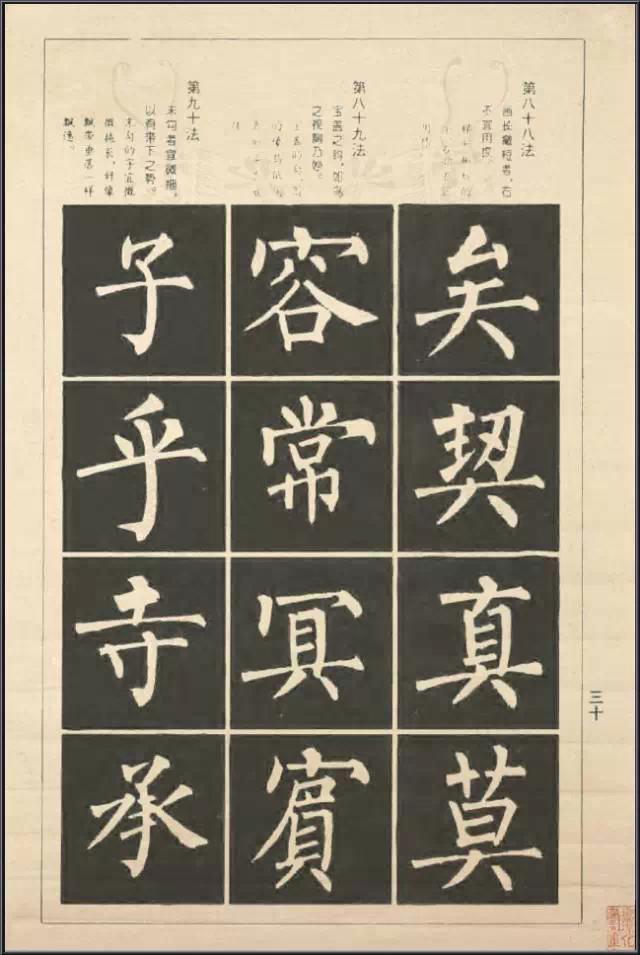 第八十八法
画长撇短者，右
不宜用捺。
第八十九法
宝盖之钩，如鸟
之视胸乃妙。
第九十法
末勾者宜微拖，
以有来下之势。
末勾的字宜微
微拖长，好像
飘带垂落一样
飘逸。
矣契真莫
容常冥賓
子乎寺承
三十